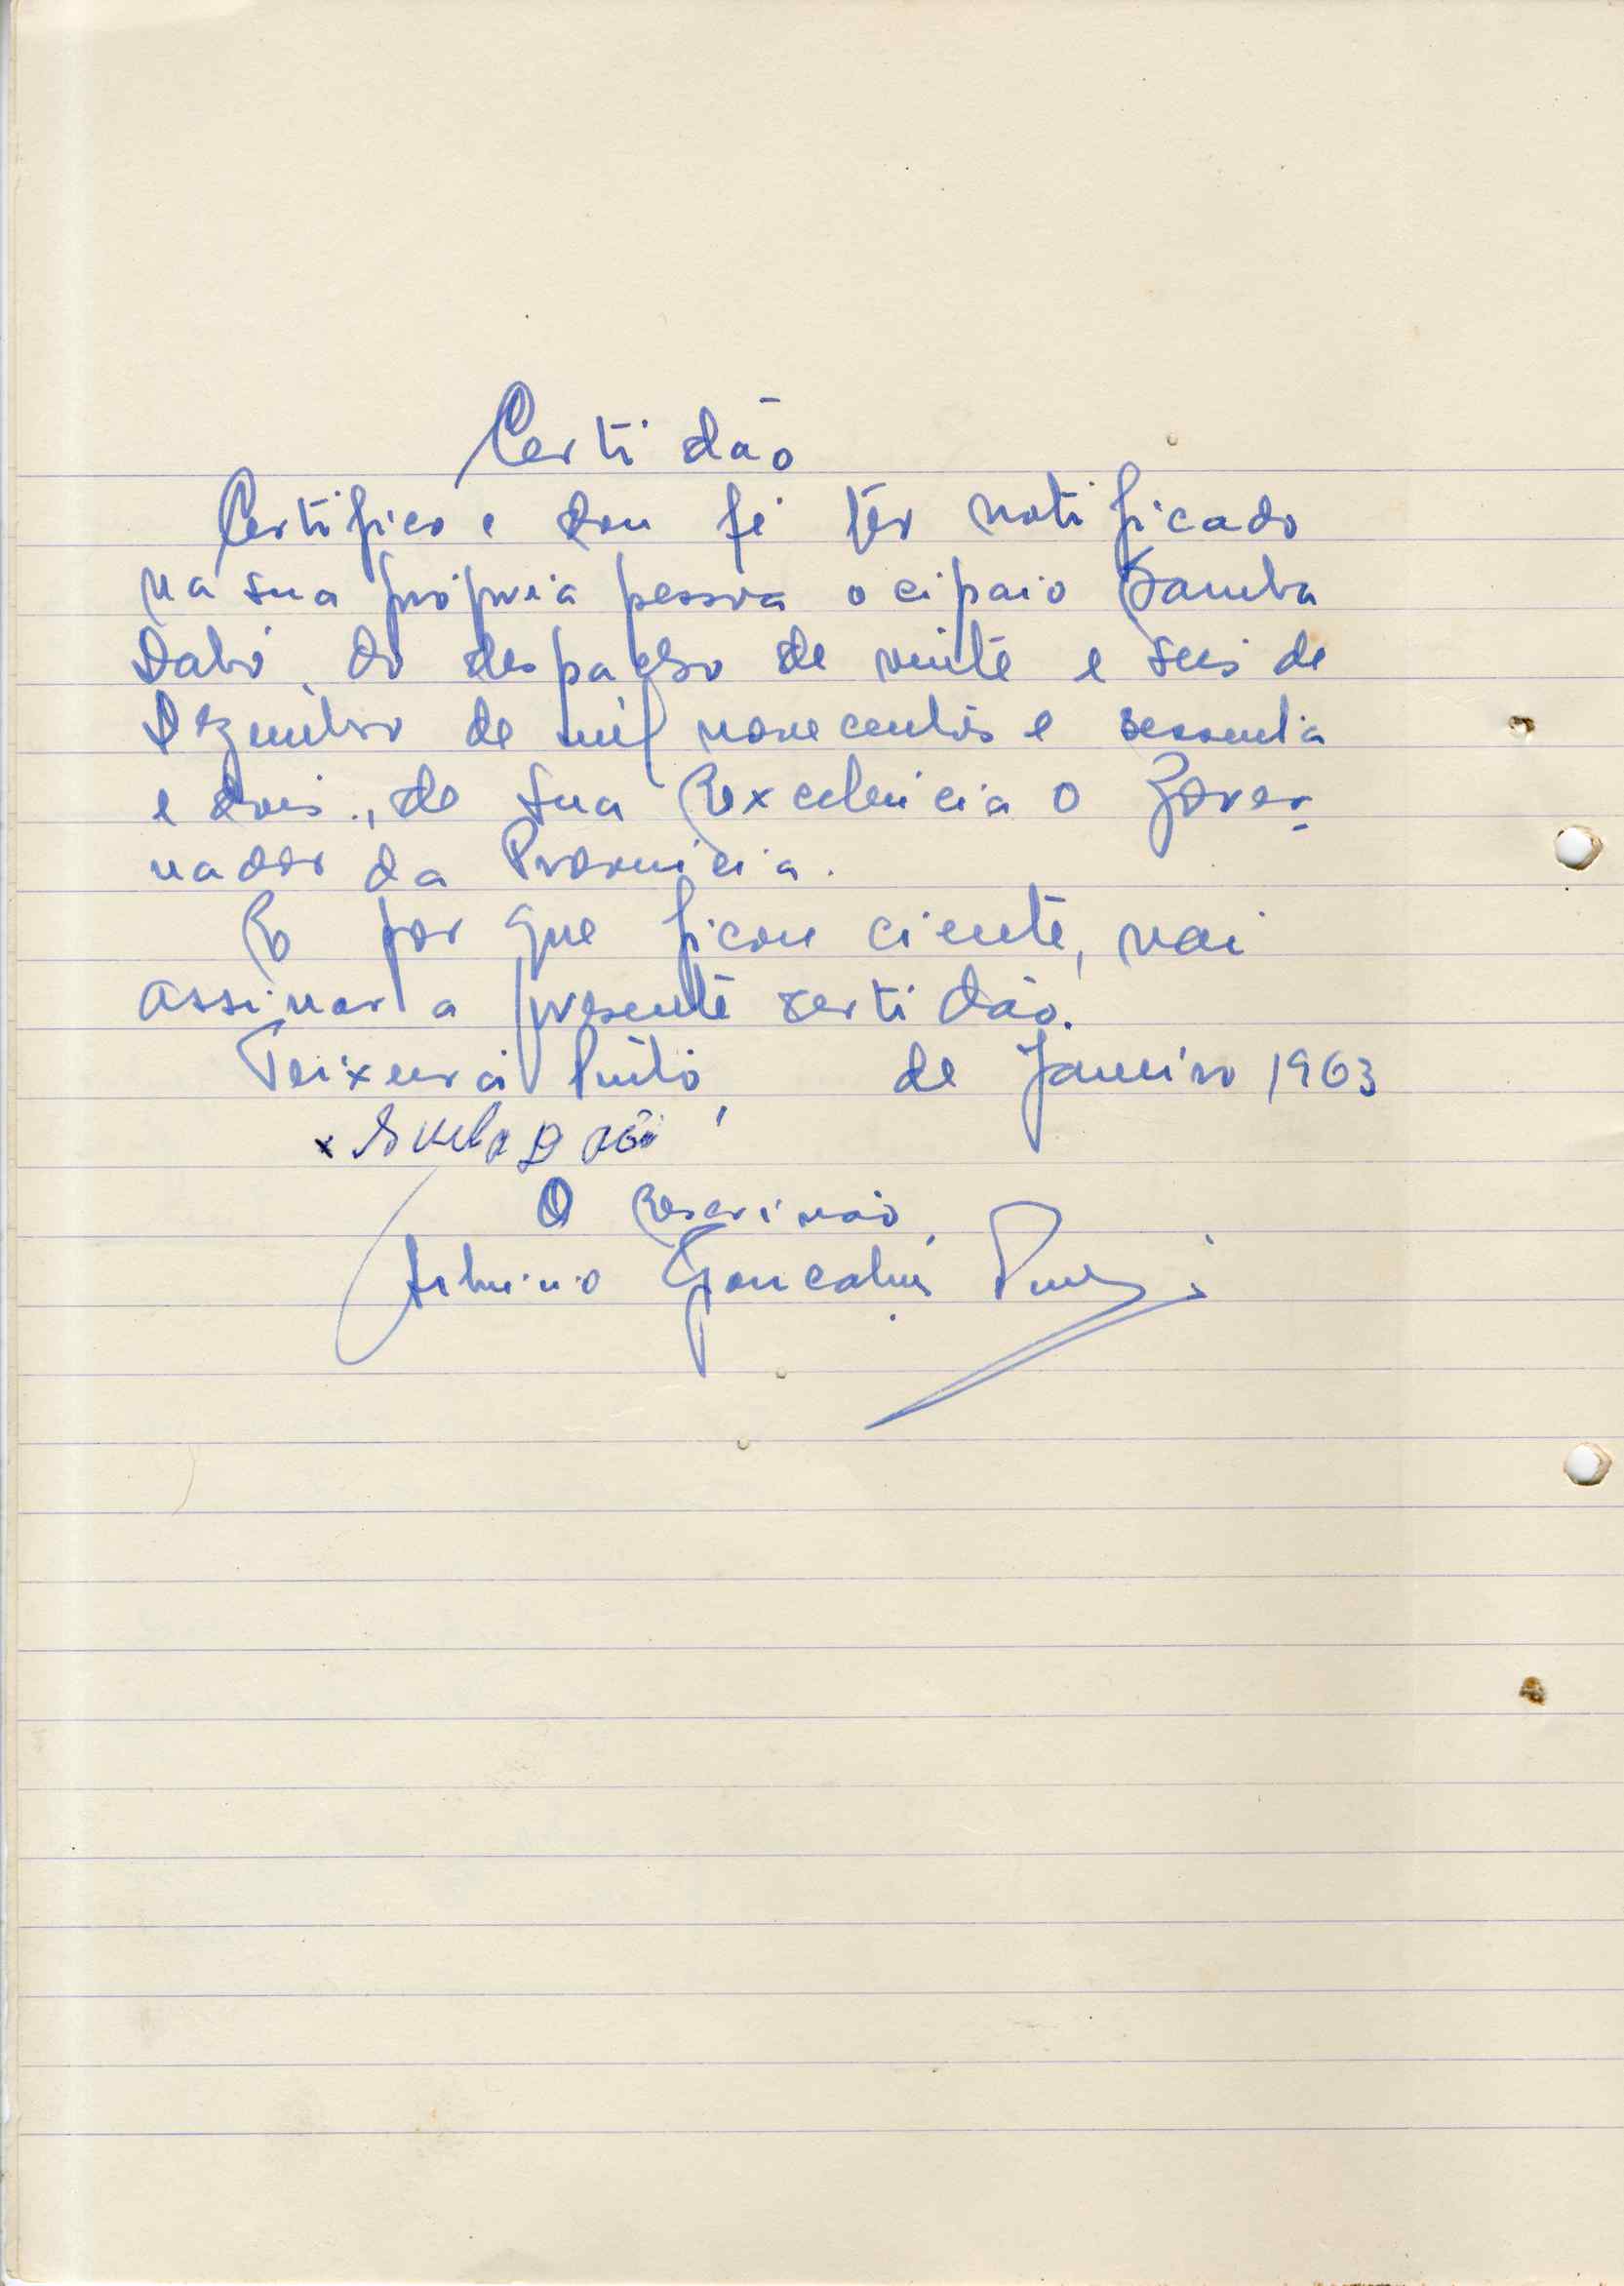 Certidão
Certifico e dou fé ter notificado
na sua própria pessoa o cipaio Samba
Dabó, do despacho de vinte e seis de
Dezembro de mil novecentos e sessenta
e dois, de Sua Excelência o Gover-
nador da Província.
E por que ficou ciente, vai
assinar a presente certidão.
Teixeira Pinto, de Janeiro 1963
x
O Escrivão,
Gonçalves